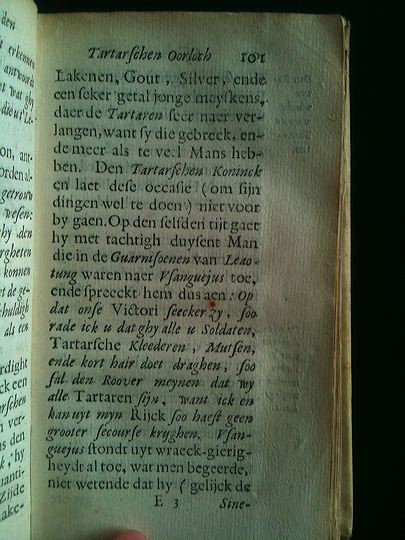 Tartarschen Oorloch 101
Lakenen, Gout, Silver, ende
een seker getal jonge meyskens,
daer de Tartaren seer naer ver-
langen, want sy die gebreck, en-
de meer als te veel Mans heb-
ben. Den Tartarschen Koninck
en laet dese occasie (om sijn
dingen wel te doen) niet voor
by gaen. Op den selfden tijt gaet
hy met tachtigh duysent Man
die in de Guarnisoenen van Leao-
tung waren naer Vsanguejus toe,
ende spreeckt hem dus aen: Op
dat onse Victori seecker zy, soo
rade ick u dat ghy alle u Soldaten,
Tartarsche Kleederen, Mutsen,
ende kort hair doet draghen, soo
sal den Roover meynen dat wy
alle Tartaren sijn, want ick en
kan uyt myn Rijck soo haest geen
grooter secourse krijghen. Vsan-
guejus stondt uyt wraeck-gierig-
heydt al toe, wat men begeerde,
niet wetende dat hy (gelijck de
E 3 Sine-